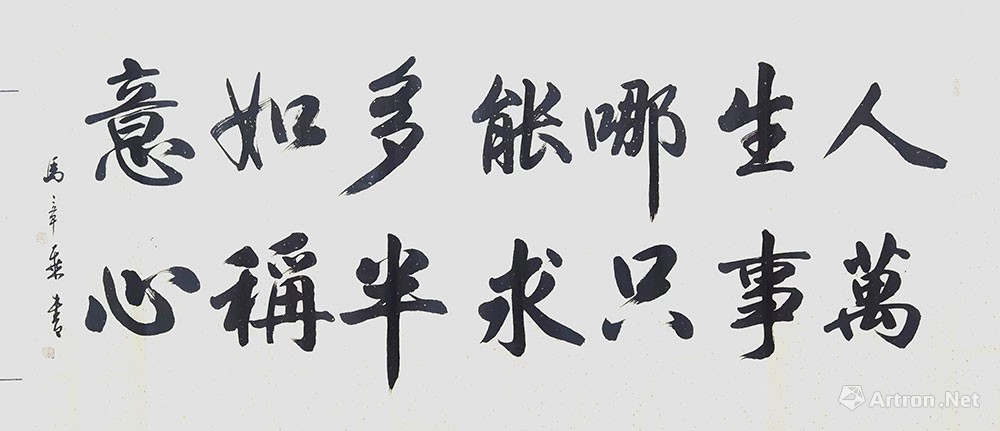 人生哪能多如意
萬事只求半稱心
馬章乘書
Artron.Net